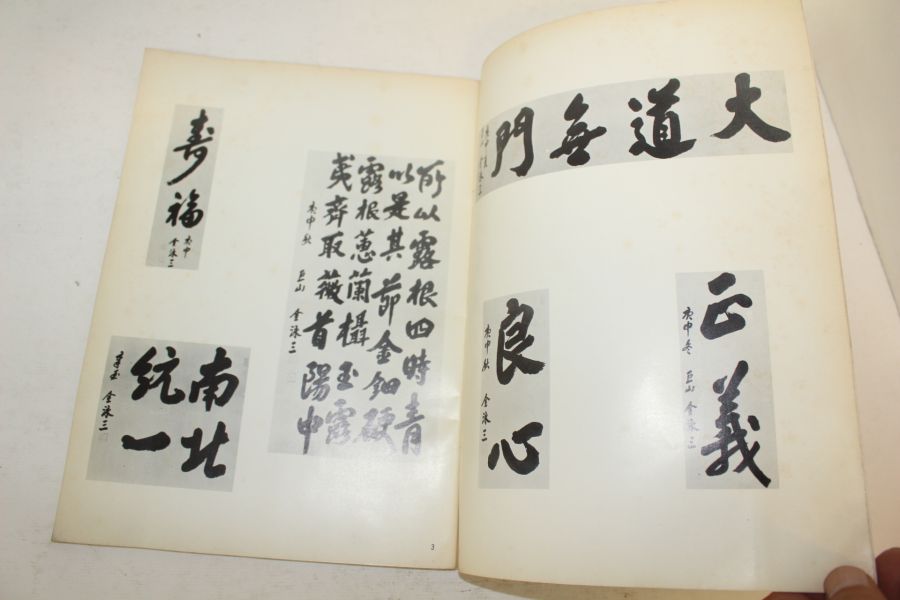 壽福
庚申
金泳三
所以露根四時青
以是其節金鈿硬
露根蕙蘭攝玉露
夷齊取薇首陽中
庚申秋 巨山 金泳三
南北
統一
辛酉 金泳三
3
大道無門
金泳三
良心
庚申秋 金泳三
正義
庚申冬 巨山 金泳三